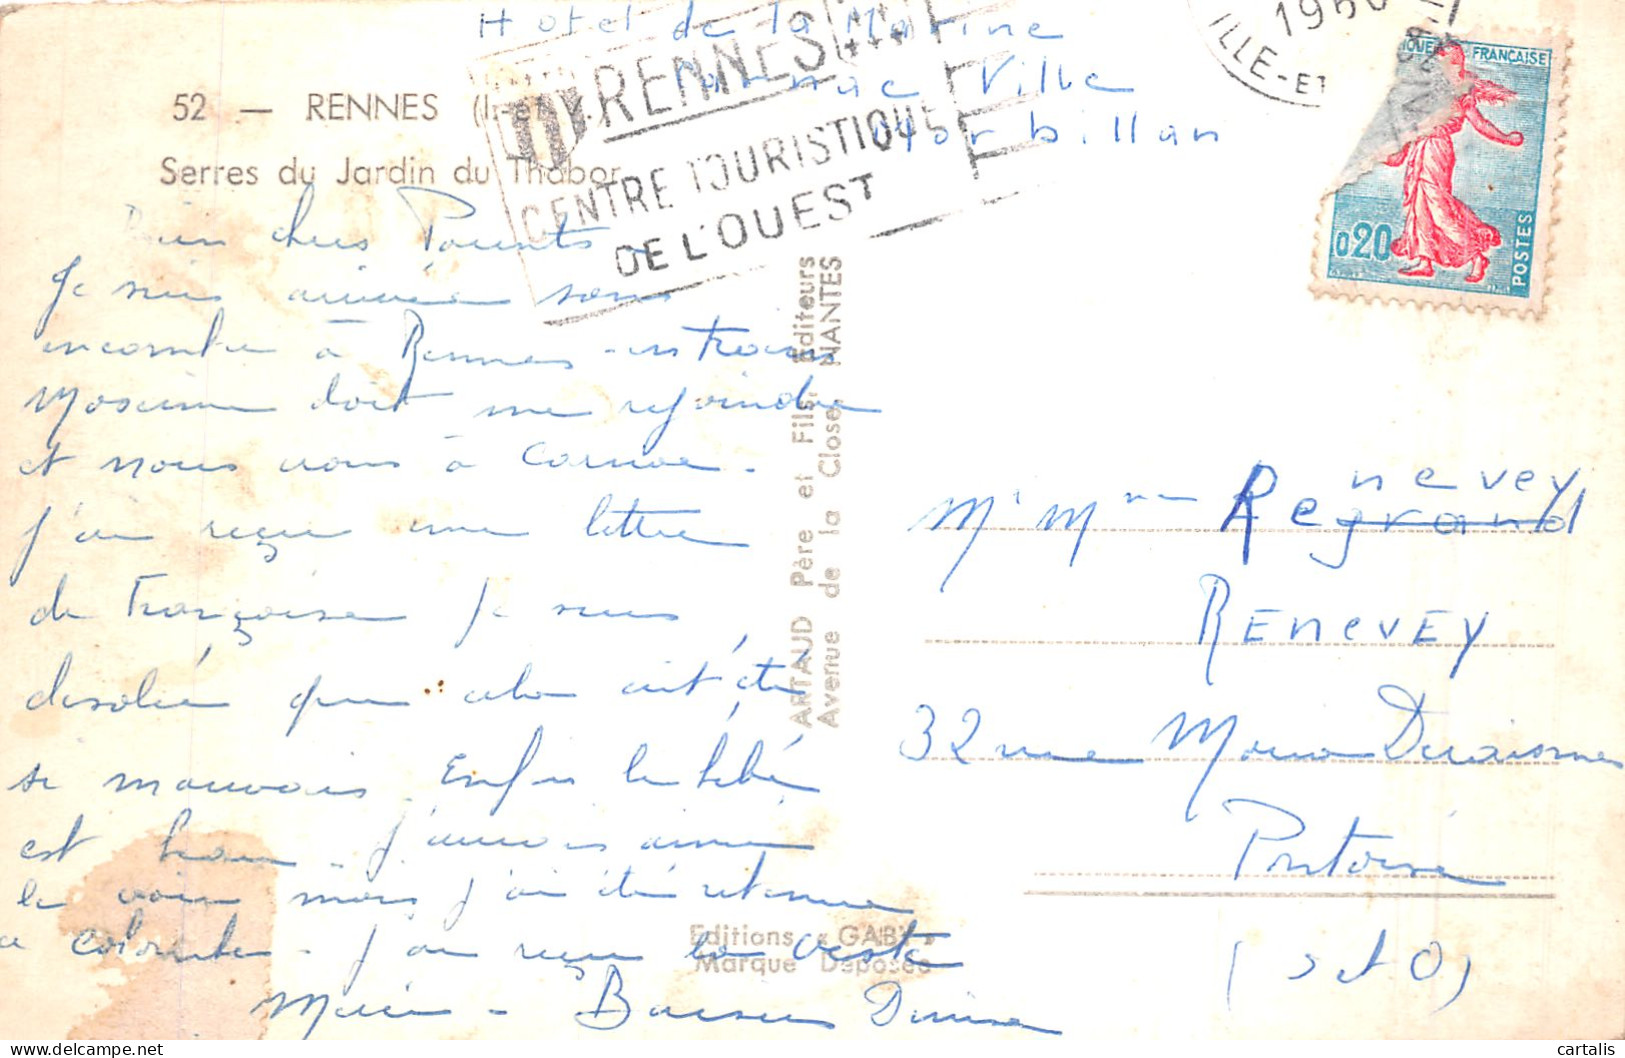 Hotel de la Marine
Carnac Ville
Morbillan
52 — RENNES (I.-et-V.)
Serres du Jardin du Thabor
RENNES
CENTRE TOURISTIQUE
DE L'OUEST
ILLE-ET
0,20
FRANÇAISE
POSTES
Bien chers Parents
Je suis arrivée sans
encombre à Rennes - en train
doit me rejoindre
et nous irons à Carnac.
J'ai reçu une lettre
de Françoise je suis
désolée que cela ait été
si mauvais. Enfin le bébé
est beau. J'aurais aimé
le voir mais j'ai été retenue
a Colombes. J'ai reçu la veste
Merci - Baisers Denise
ARTAUD Père et Fils, Editeurs
Avenue de la Close, NANTES
Editions « GABY »
Marque Déposée
Mr Mme Renevey
RENEVEY
32 rue
Pontoise
(S et O)
cartalis